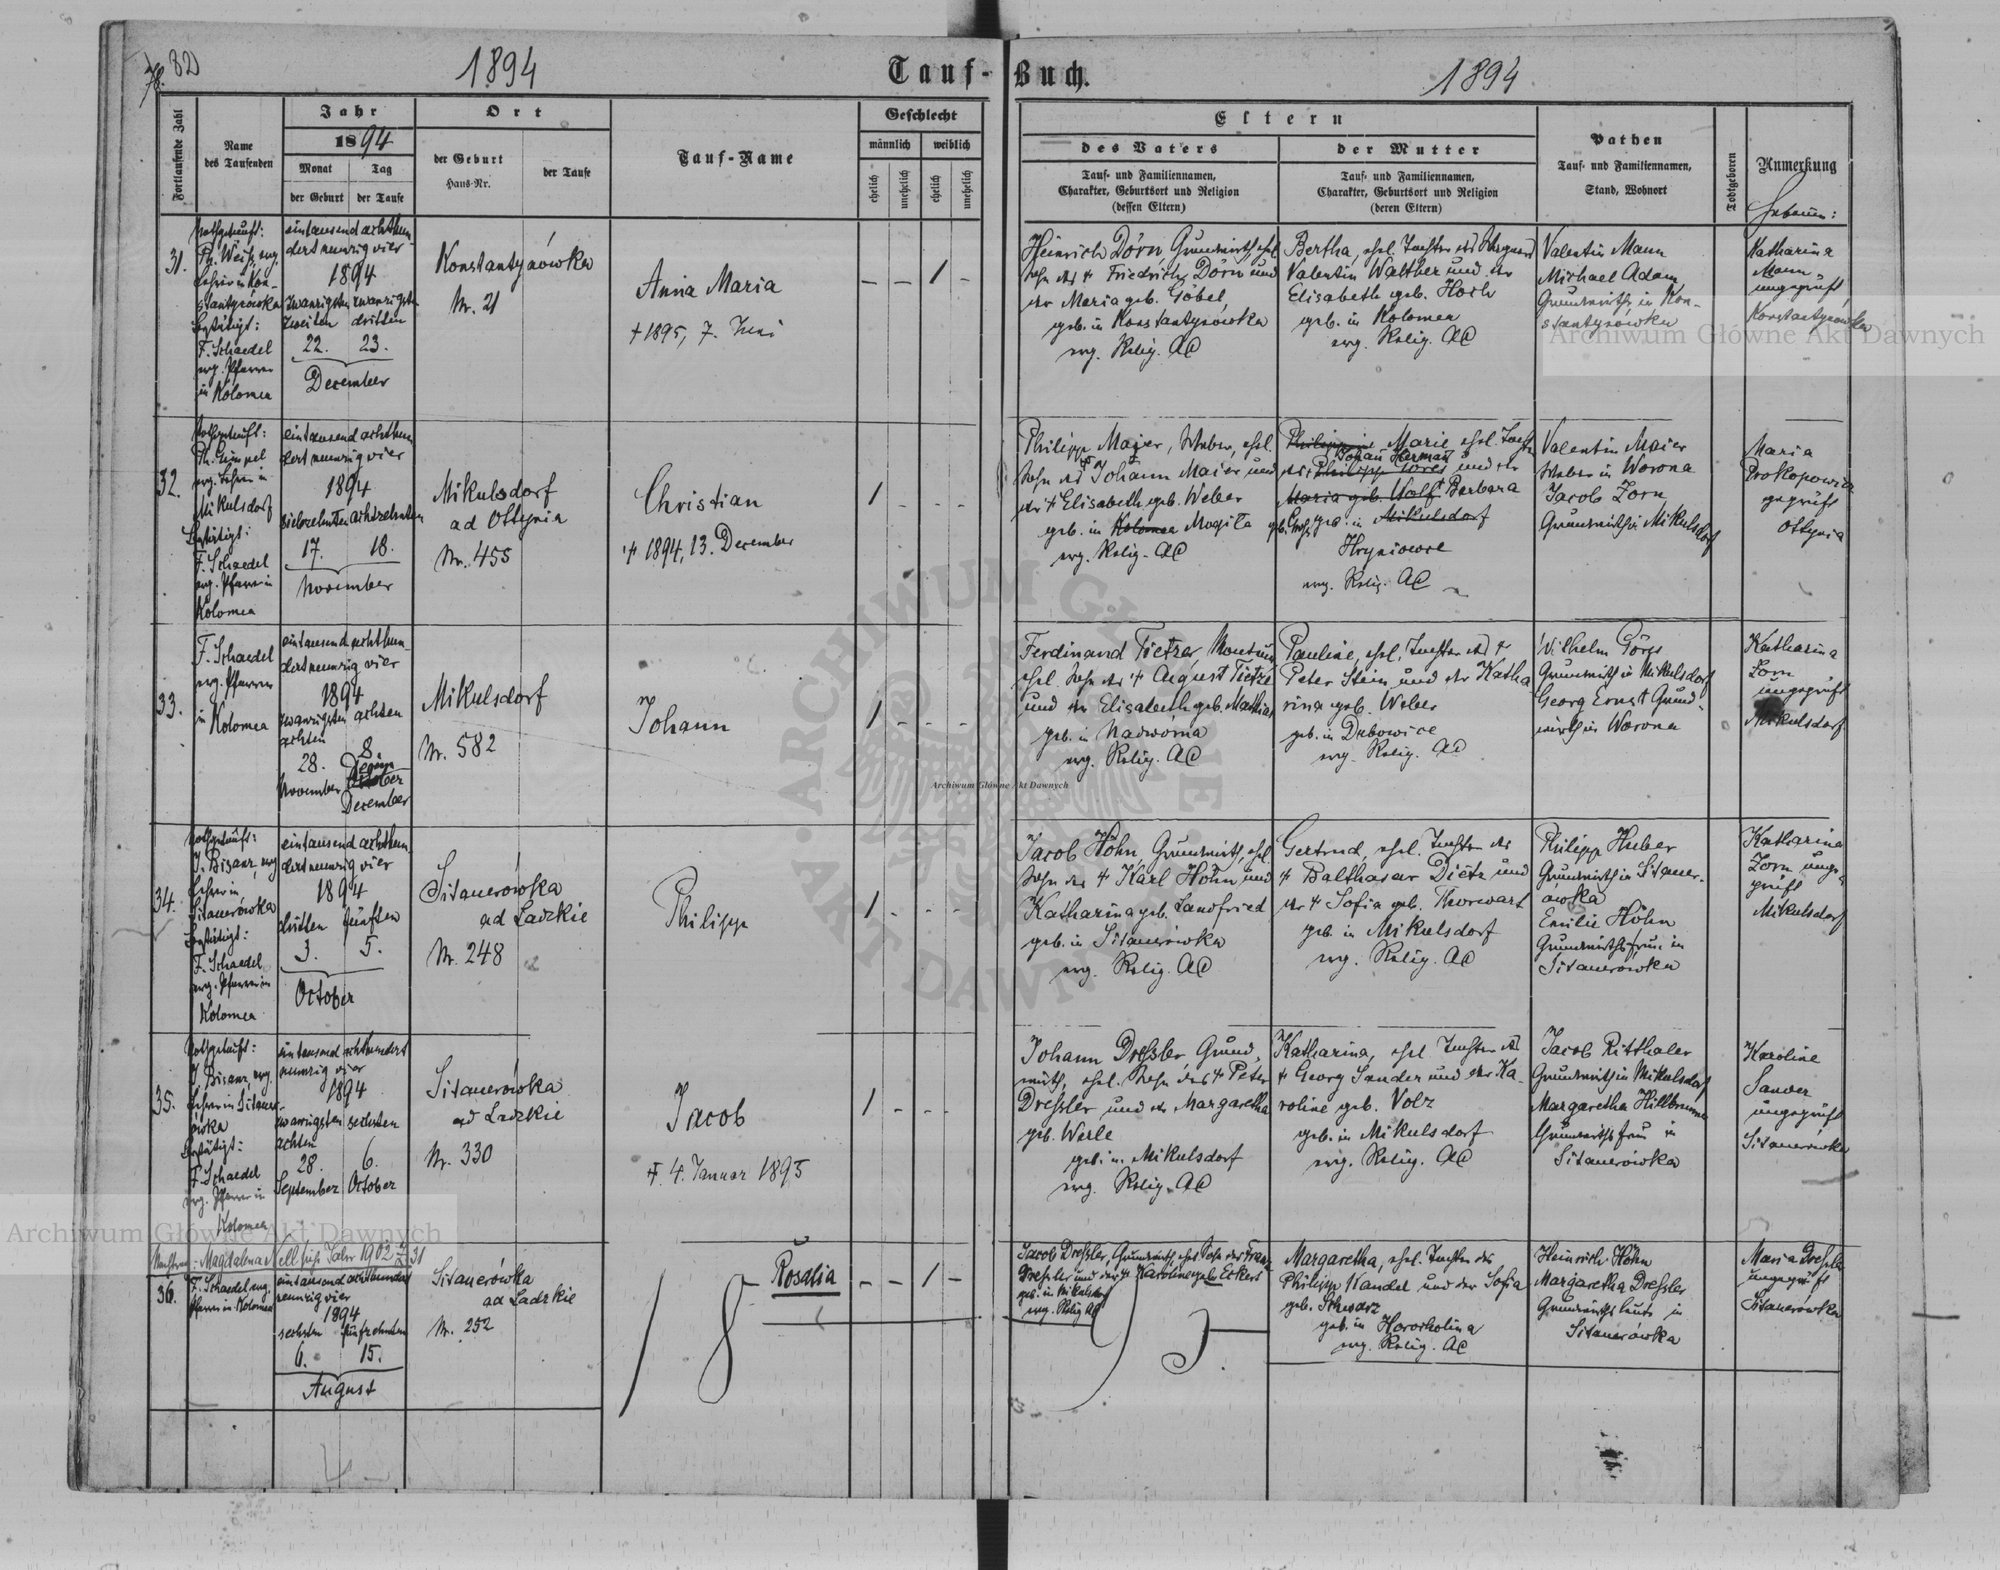 78. 82
1894
Tauf-Buch.
1894
Fortlaufende Zahl
Name
des Taufenden
Jahr
1894
Monat
Tag
der Geburt
der Taufe
Ort
der Geburt
Haus-Nr.
der Taufe
Tauf-Name
Geschlecht
männlich
weiblich
ehelich
unehelich
ehelich
unehelich
Eltern
des Vaters
Tauf- und Familiennamen,
Charakter, Geburtsort und Religion
(dessen Eltern)
der Mutter
Tauf- und Familiennamen,
Charakter, Geburtsort und Religion
(deren Eltern)
Pathen
Tauf- und Familiennamen,
Stand, Wohnort
Todtgeboren
Anmerkung
Hebamm:
31.
Nothgetauft:
Ph. Weiß, evg.
Lehrer in Kon-
stantynówka
Bestätigt:
F. Schaedel
evg. Pfarrer
in Kolomea
eintausend achthun-
dert neunzig vier
1894
zwanzigsten zwanzigsten
zweiten dritten
22. 23.
December
Konstantynówka
Nr. 21
Anna Maria
+ 1895, 7. Juni
– – 1 –
Heinrich Dörn Grundwirth, ehel.
Sohn des + Friedrich Dörn und
der Maria geb. Göbel
geb. in Konstantynówka
evg. Relig. AC
Bertha, ehel. Tochter des Wagners
Valentin Walther und der
Elisabeth geb. Hoch
geb. in Kolomea
evg. Relig. AC
Valentin Mann
Michael Adam
Grundwirthe in Kon-
stantynówka
Katharina
Mann
ungeprüft
Konstantynówka
32.
Nothgetauft:
Ph. Gimpel
evg. Lehrer in
Mikulsdorf
Bestätigt:
F. Schaedel
evg. Pfarrer in
Kolomea
eintausend achthun
dert neunzig vier
1894
siebzehnten achtzehnten
17. 18.
November
Mikulsdorf
ad Ottynia
Nr. 455
Christian
+ 1894, 13. December
1 - - -
Philipp Maier, Weber, ehel.
Sohn des + Johann Maier und
der + Elisabeth geb. Weber
geb. in Kolomea Mogila
evg. Relig. AC
Philippine Marie ehel. Tochter
Johann Herman
des Philipp Görs und der
Maria geb. Wolf + Barbara
geb. in Mikulsdorf
Hryniowce
evg. Relig. AC
Valentin Maier
Weber in Worona
Jacob Zorn
Grundwirth in Mikulsdorf
Maria
Prokopowicz
geprüft
Ottynia
33.
F. Schaedel
evg. Pfarrer
in Kolomea
eintausend achthun-
dert neunzig vier
1894
zwanzigsten achten
achten
28. 8.
November October
December
Mikulsdorf
Nr. 582
Johann
1 - - -
Ferdinand Tietze
ehel. Sohn des + August Tietze
und der Elisabeth geb. Mathias
geb. in Nadworna
evg. Relig. AC
Pauline, ehel. Tochter des +
Peter Stein und der Katha
rina geb. Weber
geb. in Dubowice
evg. Relig. AC
Wilhelm Görs
Grundwirth in Mikulsdorf
Georg Ernst Grund-
wirth in Worona
Katharina
Zorn
ungeprüft
Mikulsdorf
34.
Nothgetauft:
J. Bisanz, evg
Lehrer in
Sitauerówka
Bestätigt:
F. Schaedel
evg. Pfarrer in
Kolomea
eintausend achthun-
dert neunzig vier
1894
dritten fünften
3. 5.
October
Sitauerówka
ad Ladzkie
Nr. 248
Philipp
1 - - -
Jacob Höhn, Grundwirth, ehel.
Sohn des + Karl Höhn und
Katharina geb. Landfried
geb. in Sitauerówka
evg. Relig. AC
Gertrud, ehel. Tochter des
+ Balthasar Dietz und
der + Sofia geb. Thorwart
geb. in Mikulsdorf
evg. Relig. AC
Philipp Huber
Grundwirth in Sitauer-
ówka
Emilie Höhn
Grundwirthsfrau in
Sitauerówka
Katharina
Zorn unge-
prüft
Mikulsdorf
35.
Nothgetauft:
J. Bisanz, evg.
Lehrer in Sitauer-
ówka
Bestätigt:
F. Schaedel
evg. Pfarrer in
Kolomea
eintausend achthundert
neunzig vier
1894
zwanzigsten sechsten
achten
28. 6.
September October
Sitauerówka
ad Ladzkie
Nr. 330
Jacob
+ 4. Januar 1895
1 - - -
Johann Dreßler Grund-
wirth, ehel. Sohn des + Peter
Dreßler und der Margaretha
geb. Werle
geb. in Mikulsdorf
evg. Relig. AC
Katharina, ehel. Tochter des
+ Georg Sander und der Ka-
roline geb. Volz
geb. in Mikulsdorf
evg. Relig. AC
Jacob Ritthaler
Grundwirth in Mikulsdorf
Margaretha Hillbrunner
Grundwirthsfrau in
Sitauerówka
Karoline
ungeprüft
Sitauerówka
Magdalena siehe Jahr 1902 31
36.
F. Schaedel, evg.
Pfarrer in Kolomea
eintausend achthundert
neunzig vier
1894
sechsten fünfzehnten
6. 15.
August
Sitauerówka
ad Ladzkie
Nr. 252
Rosalia
– – 1 –
Jacob Dreßler, Grundwirth, ehel. Sohn des Franz
Dreßler und der + Karoline geb. Eckert
geb. in Mikulsdorf
evg. Relig. AC
Margaretha, ehel. Tochter des
Philipp Mandel und der Sofia
geb. Schwarz
geb. in Horocholina
evg. Relig. AC
Heinrich Höhn
Margaretha Dreßler
Grundwirthsleute in
Sitauerówka
Maria Dreßler
ungeprüft
Sitauerówka
Archiwum Główne Akt Dawnych
Archiwum Główne Akt Dawnych
Archiwum Główne Akt Dawnych
ARCHIWUM GŁÓWNE AKT DAWNYCH